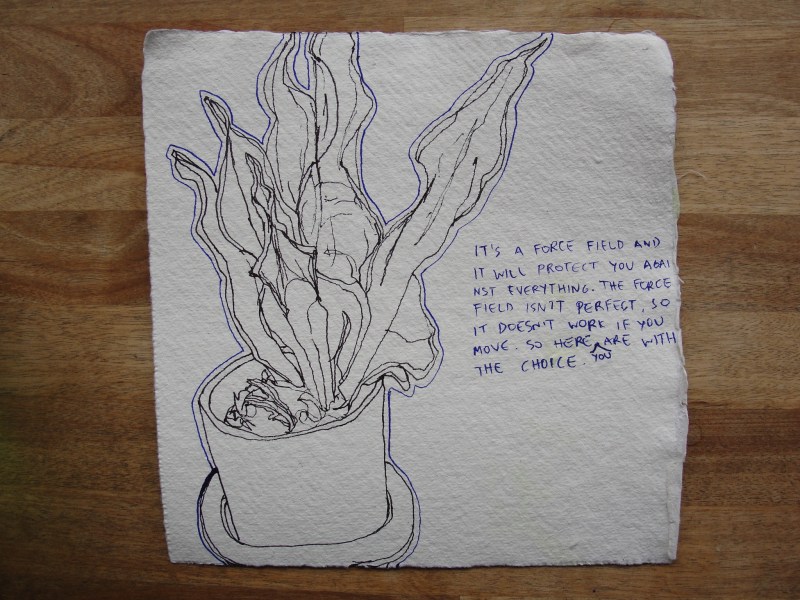 IT'S A FORCE FIELD AND
IT WILL PROTECT YOU AGAI
NST EVERYTHING. THE FORCE
FIELD ISN'T PERFECT, SO
IT DOESN'T WORK IF YOU
MOVE. SO HERE YOU ARE WITH
THE CHOICE.